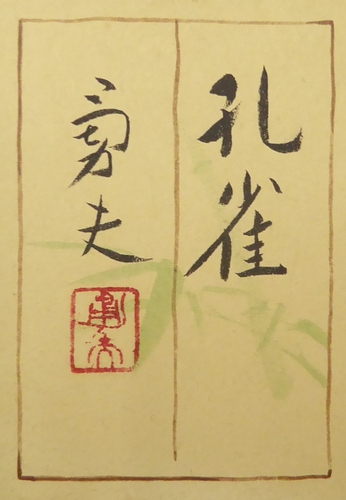 孔雀
勇夫